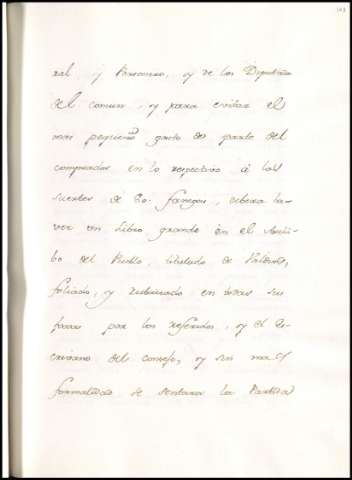 ral, y Personero, y de los Diputados
del comun, y para evitar el
mas pequeño gasto de parte del
comprador en lo respectivo á las
suertes de 20. fanegas, debera ha-
ver un Libro grande en el Archi-
bo del Pueblo, titulado de
foliado, y rubricado en todas sus
por los referidos, y el Es-
crivano del consejo, y sin mas
formalidad se sentara la Partida